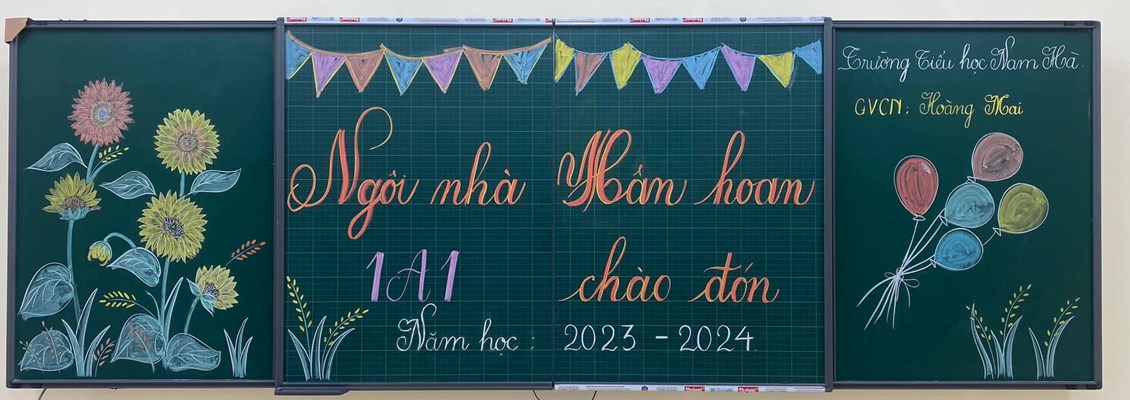 Ngôi nhà Hân hoan
1A1 chào đón
Năm học: 2023 - 2024
Trường Tiểu học Nam Hà
GVCN: Hoàng Mai